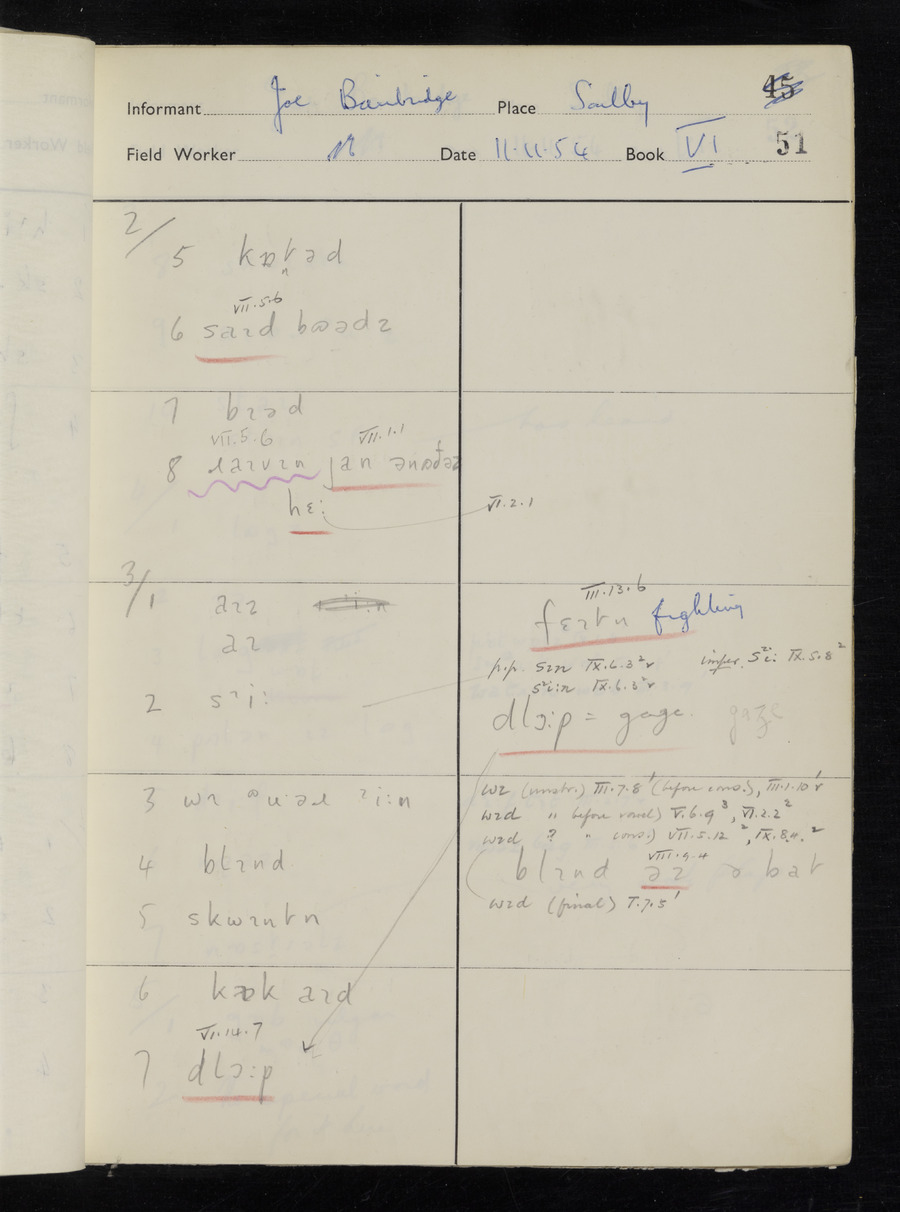 45
Informant Joe Bainbridge Place Soulby
Field Worker Date 11.11.54 Book VI 51
2/
5 kɒtəd
VII.5.6
6
7 bɪəd
VII.5.6 VII.1.1
8 jan
hɛ: VI.2.1
3/
1 aɪz
aɪ
III.13.6
fɛɪtn fighting
p.p. IX.6.3²v imper. sᶻi: IX.5.8²
IX.6.3²v
2 sᶻi:
dlɔ:p = gage. gaze
3 wɪ
wɪ III.7.8¹ (before cons.), III.1.10¹v
wɪd " before vowel) V.6.9³, VI.2.2²
wɪd ? " cons.) VII.5.12², IX.8.4.²
4 blɪnd
VIII.9.4
blɪnd əz ə bat
wɪd (final) I.7.5¹
5 skwɪntn
6 kɒk aɪd
VI.14.7
7 dlɔ:p